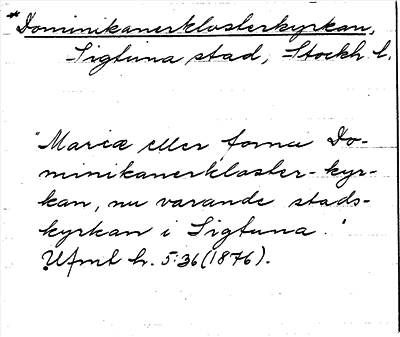 *Dominikanerklosterkyrkan,
Sigtuna stad, Stockh. l.
"Mariæ eller forna Do-
minikanerkloster-kyr-
kan, nu varande stads-
kyrkan i Sigtuna."
Ufmt h. 5:36 (1876).